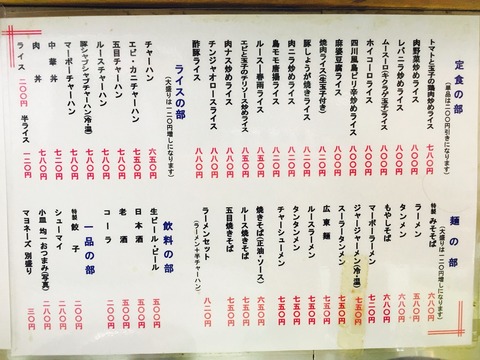 定食の部
(単品は二〇〇円引きになります)
トマトと玉子の鶏肉炒めライス 七八〇円
肉野菜炒めライス
レバニラ炒めライス
ムースーロ(キクラゲ玉子)ライス
ホイコーロライス
四川風鳥ピリ辛炒めライス
麻婆豆腐ライス
焼肉ライス(生玉子付き)
豚しょうが焼きライス
肉ニラ炒めライス
鳥モモ唐揚ライス
ルースー春雨ライス
エビと玉子のチリソース炒めライス
肉ナス炒めライス
チンジャオロースライス
酢豚ライス
ライスの部
(大盛りは一二〇円増しになります)
チャーハン 六五〇円
エビ・カニチャーハン 七五〇円
五目チャーハン
ルースチャーハン 七八〇円
マーボーチャーハン
豚シャブシャブチャーハン(冷・温)
中華丼 七二〇円
肉丼 七八〇円
ライス 二〇〇円 半ライス 一二〇円
麺の部
(大盛りは一二〇円増しになります)
特製 みそそば 七八〇円
ラーメン
タンメン 六八〇円
もやしそば 六八〇円
マーボーラーメン 七二〇円
ジャージャーメン(冷・温) 七五〇円
スーラータンメン 七五〇円
広東麺 七五〇円
ルースラーメン 七五〇円
タンタンメン 七五〇円
チャーシューメン 七五〇円
焼きそば(正油・ソース) 六五〇円
ルース焼きそば 七五〇円
五目焼きそば 七五〇円
ラーメンセット 八二〇円
(ラーメン+半チャーハン)
飲料の部
生ビール・ビール 五〇〇円
日本酒
老酒
コーラ
一品の部
特製 餃子
シューマイ
小皿 均一おつまみ(写真)
マヨネーズ 別盛り 三〇円